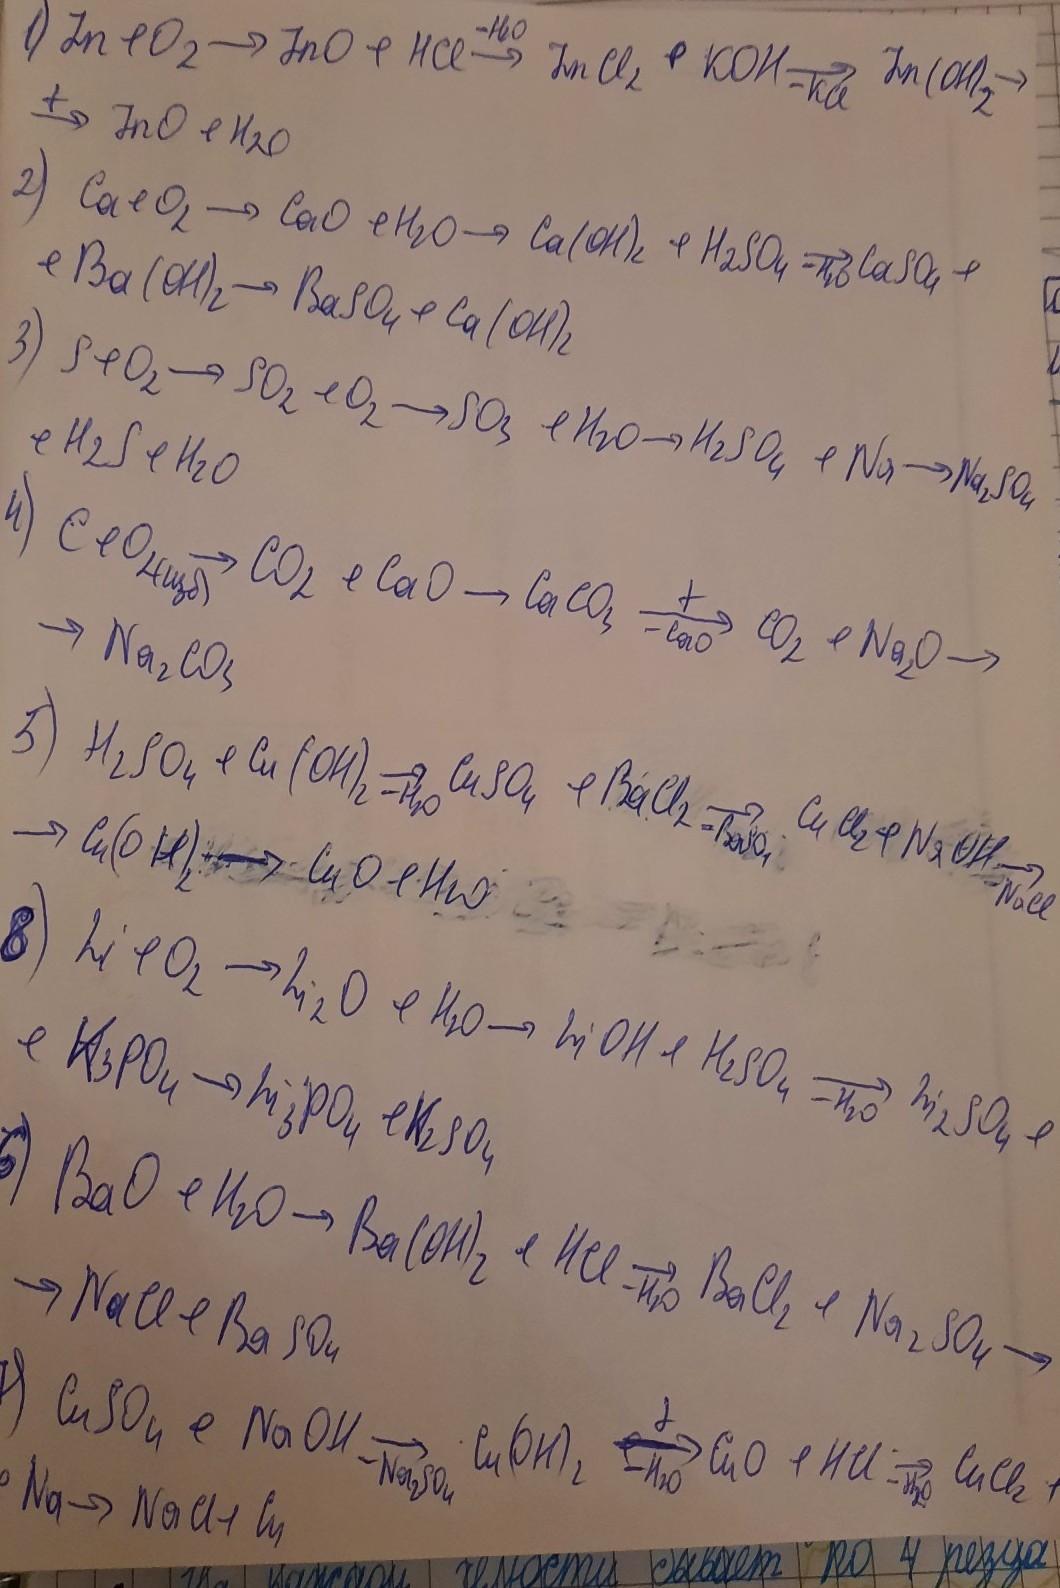 1) Zn + O2 → ZnO + HCl –H2O→ ZnCl2 + KOH –KCl→ Zn(OH)2 →
t→ ZnO + H2O
2) Ca + O2 → CaO + H2O → Ca(OH)2 + H2SO4 –H2O→ CaSO4 +
+ Ba(OH)2 → BaSO4 + Ca(OH)2
3) S + O2 → SO2 + O2 → SO3 + H2O → H2SO4 + Na → Na2SO4
+ H2S + H2O
4) C + O2(изб) → CO2 + CaO → CaCO3 t –CaO→ CO2 + Na2O →
→ Na2CO3
5) H2SO4 + Cu(OH)2 –H2O→ CuSO4 + BaCl2 –BaSO4→ CuCl2 + NaOH –NaCl→
→ Cu(OH)2 → CuO + H2O
8) Li + O2 → Li2O + H2O → LiOH + H2SO4 –H2O→ Li2SO4 +
+ K3PO4 → Li3PO4 + K2SO4
6) BaO + H2O → Ba(OH)2 + HCl –H2O→ BaCl2 + Na2SO4 →
→ NaCl + BaSO4
7) CuSO4 + NaOH –Na2SO4→ Cu(OH)2 t –H2O→ CuO + HCl –H2O→ CuCl2 +
Na → NaCl + Cu
каждой челюсти бывает по 4 резца